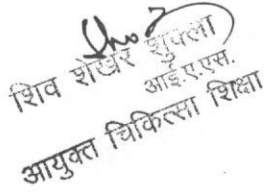 शिव शेखर शुक्ला)
आई.ए.एस.
आयुक्त चिकित्सा शिक्षा